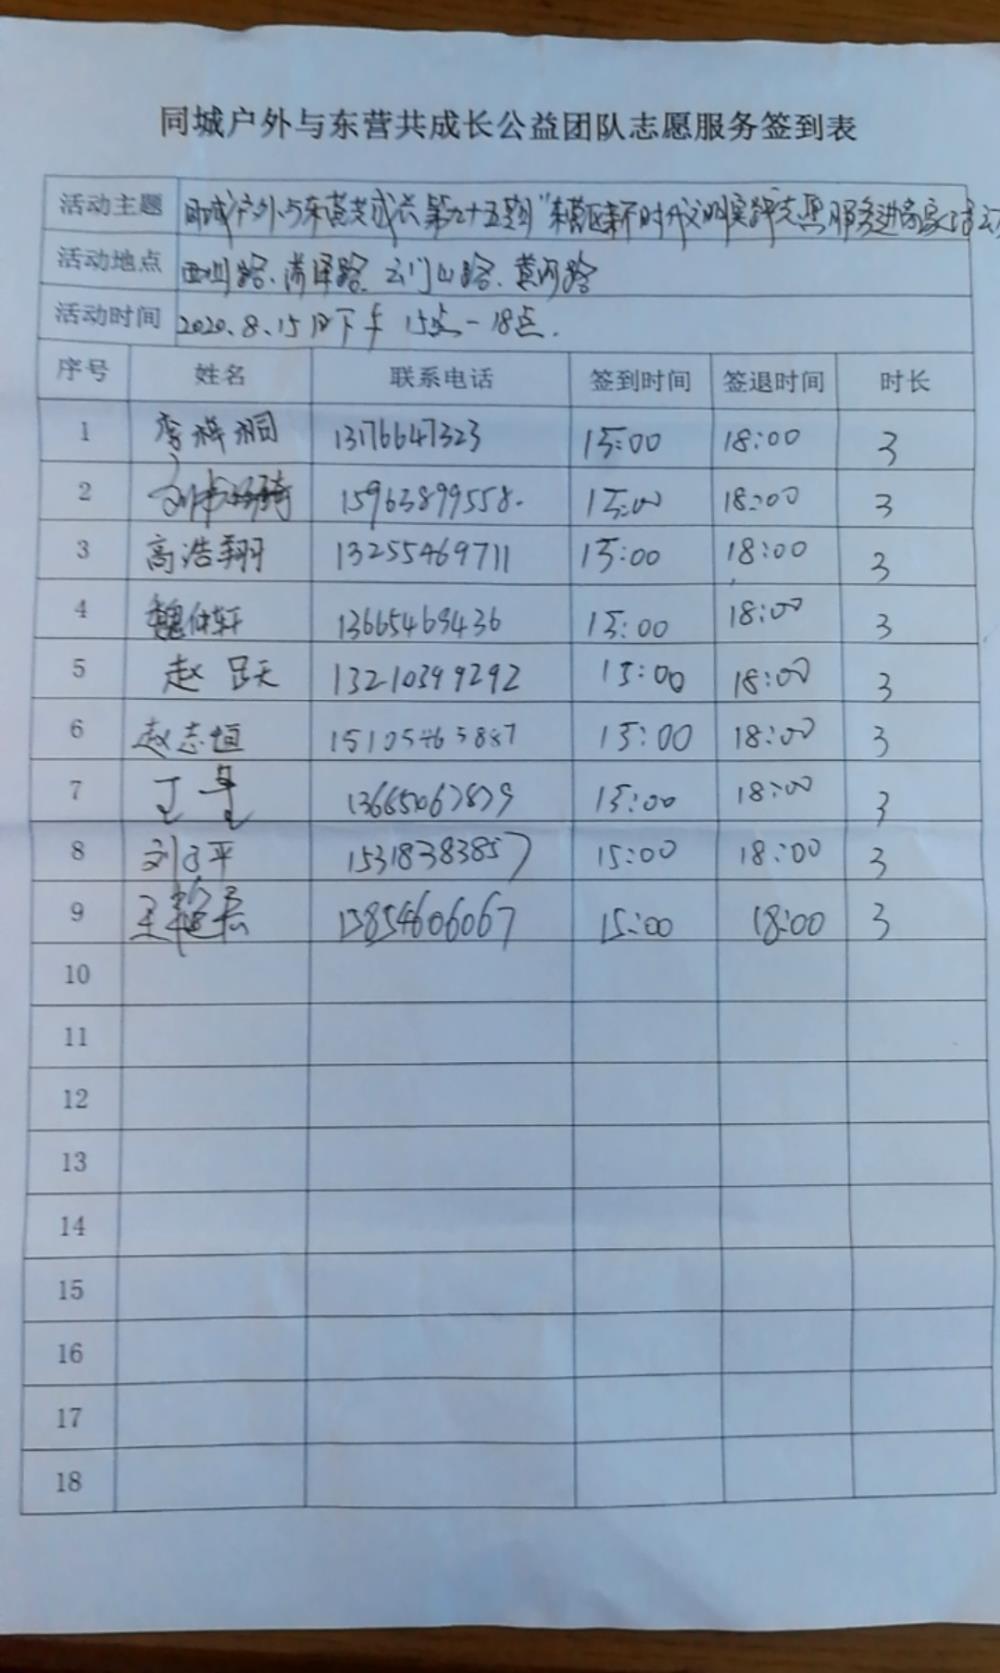 同城户外与东营共成长公益团队志愿服务签到表
活动主题 同城户外与东营共成长第九十五期"东营区新时代文明实践志愿服务进万家活动
活动地点 西川路、菏泽路、云门山路、黄河路
活动时间 2020.8.15日下午 15点-18点.
序号 姓名 联系电话 签到时间 签退时间 时长
1 李祥润 13176647323 15:00 18:00 3
2 15963899558. 15:00 18:00 3
3 高浩翔 13255469711 15:00 18:00 3
4 魏仕轩 13665469436 15:00 18:00 3
5 赵跃天 13210399292 15:00 18:00 3
6 赵志恒 15105463887 15:00 18:00 3
7 13665067879 15:00 18:00 3
8 刘子平 15318383857 15:00 18:00 3
9 13854606067 15:00 18:00 3
10
11
12
13
14
15
16
17
18